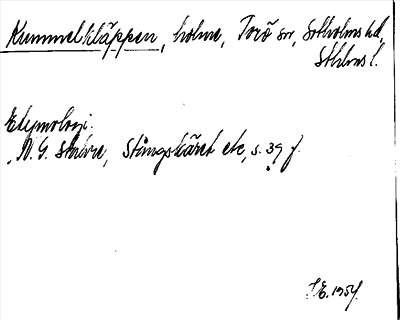 Kummelkläppen, holme, Torö sn, Sotholms hd,
Sthlms l.
Etymologi:
N. G. Stahre, Stångskäret etc, s. 39 f.
1954.